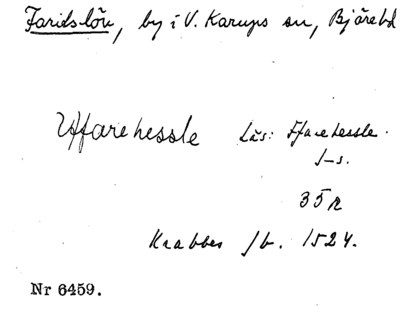 Faridslöv, by i V. Karups sn, Bjäre hd
Uffarehessle Läs: Ffarehessle.
J-s.
35 r
Krabbes Jb. 1524.
Nr 6459.